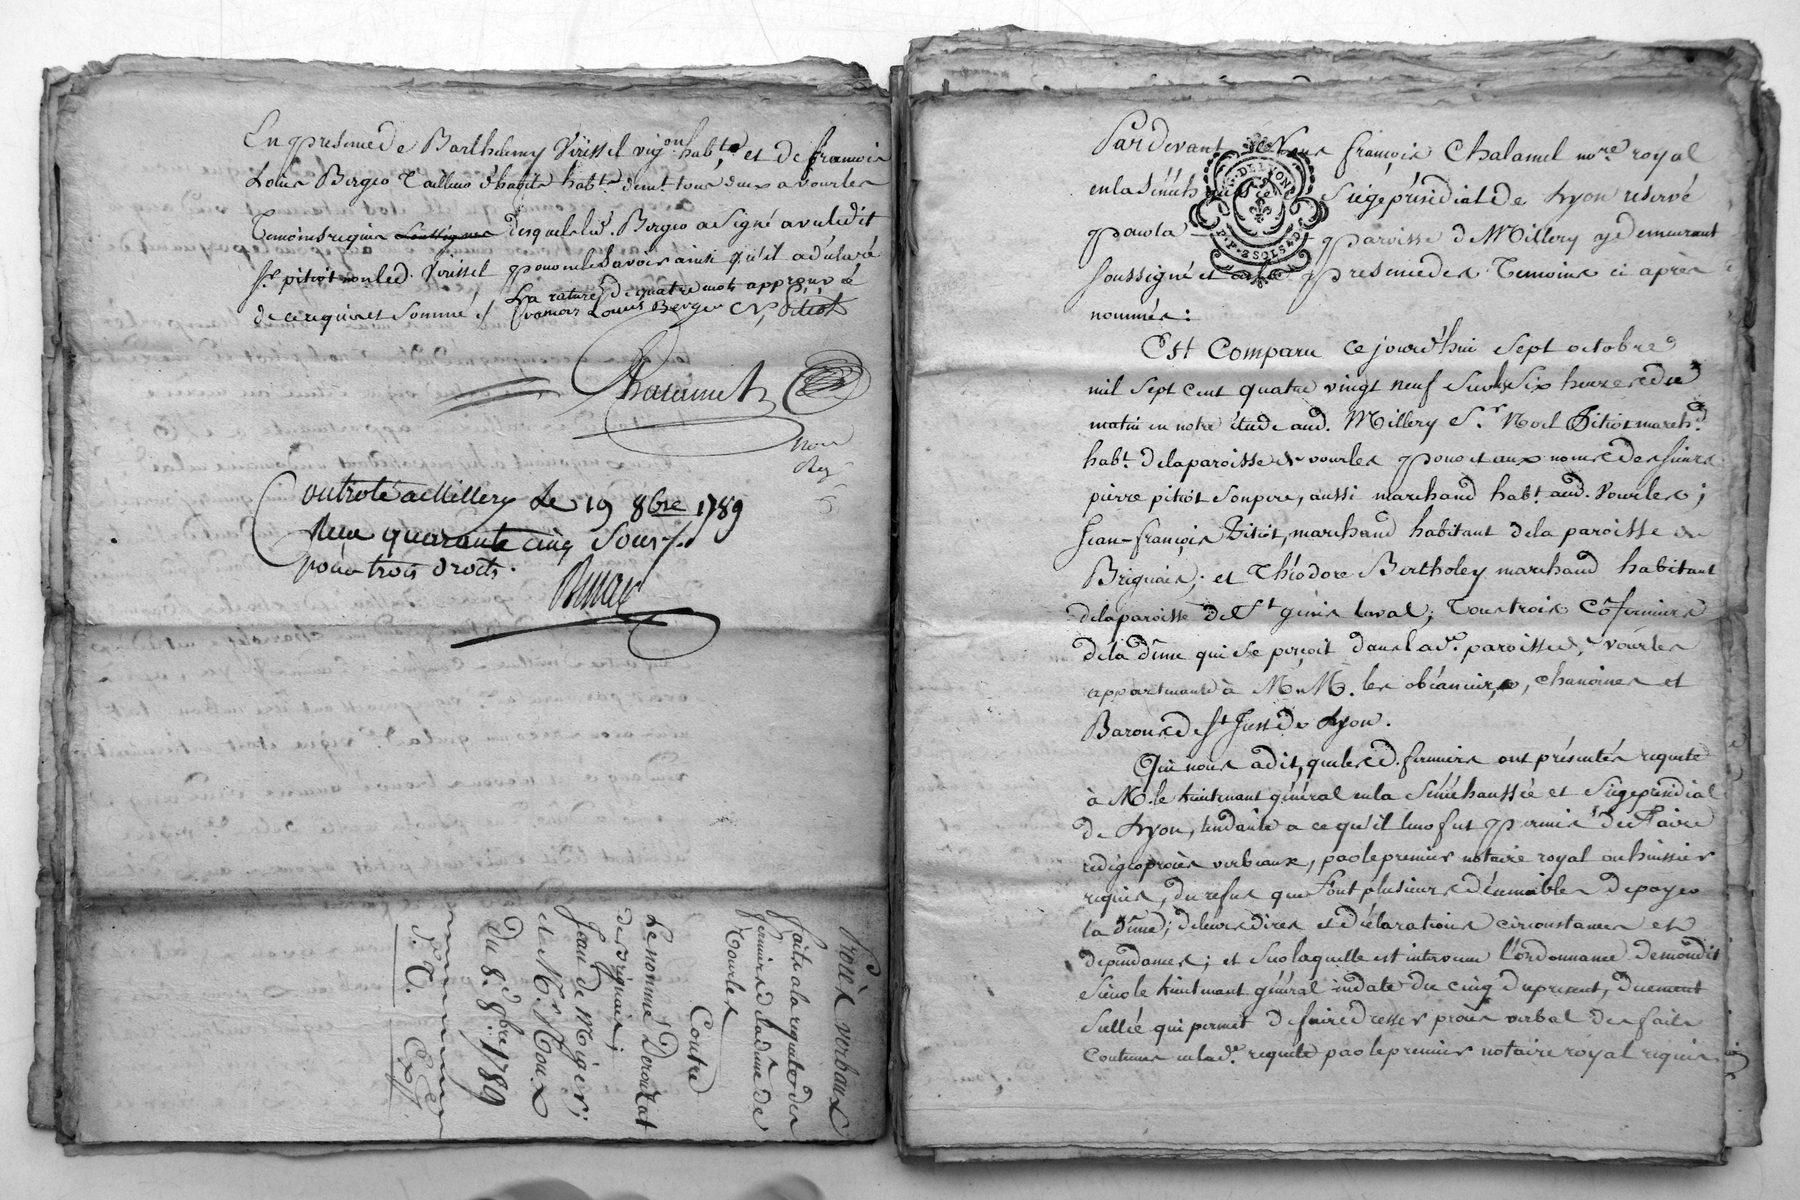 En presence de Barthelemy Virissel vigon habt. et de francois
Louis Berger Tailleur d'habits habt. demt. tous deux a vourles
Temoins requis soussignes desquels led. Berger a signé avec ledit
sr. pitiot non led. Virissel pour ne le savoir ainsi qu'il a déclaré
de ce requis et sommé ./. La rature de quatre mots approuvée
francois Louis Berger Pitiot
Chalamel
Controlé a Millery le 19 8bre 1789
Reçu quarante cinq Sous
pour trois droits.
Procès verbaux
faits a la requete des
fermiers de la dime de
Vourles
Contre
Le nommé Derouzat
de Brignais;
Jean de Miger;
et Mr. Roux
du 8. 8bre. 1789
d. T. Exp.
Par devant Nous françois Chalamel nore. royal
en la Sénéchaussée Siege présidial de Lyon reservé
pour la paroisse de Millery y demeurant
soussigné et en presence des Temoins ci après
nommés:
Est Comparu ce jourd'hui sept octobre
mil sept cent quatre vingt neuf sur les six heures de
matin en notre étude aud. Millery Sr. Noel Pitiot marchd.
habt. de la paroisse de vourles pour et aux noms de sieurs
pierre pitiot son pere, aussi marchand habt. aud. Vourles;
Jean-françois Pitiot, marchand habitant de la paroisse de
Brignais; et Théodore Bertholey marchand habitant
de la paroisse de St. genis laval; Tous trois Cofermiers
de la dime qui se perçoit dans lade. paroisse de vourles
appartenante à M.M. les obéanciers, chanoines et
Barons de St. Just de Lyon.
Qui nous a dit, que lesd. fermiers ont présentés requete
à M. le lieutenant général en la Sénéchaussée et Siege présidial
de Lyon, tendante a ce qu'il leur fut permis de faire
rediger procès verbaux, par le premier notaire royal ou huissier
requis, du refus que font plusieurs décimables de payer
la dime; de leurs dires et déclarations circonstances et
dépendances; et sur laquelle est intervenu l'ordonnance de mondit
sieur le lieutenant général en date du cinq du present, duement
scellée qui permet de faire dresser procès verbal des faits
contenus en lade. requete par le premier notaire royal requis